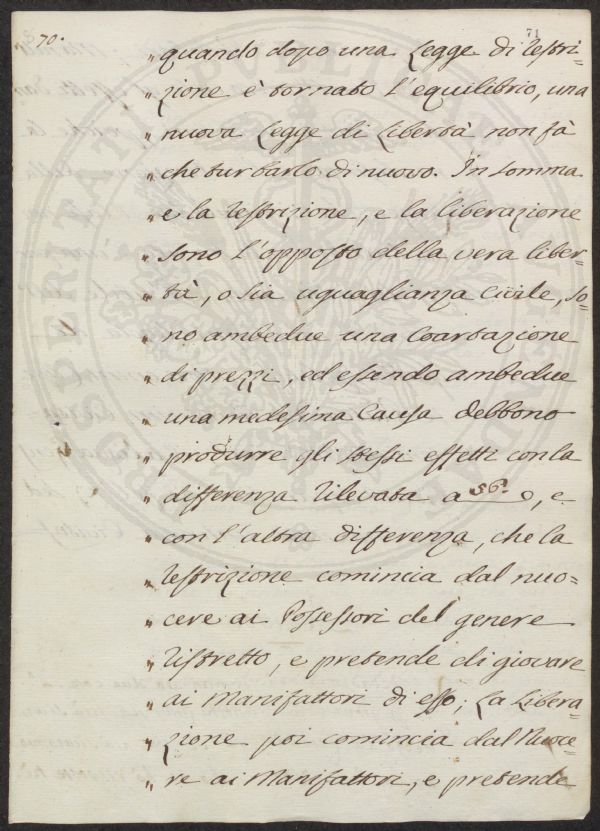 70. 71
„ quando dopo una Legge di restri-
„ zione è tornato l'equilibrio, una
„ nuova Legge di Libertà non fà
„ che turbarlo di nuovo. In somma
„ e la restrizione, e la liberazione
„ sono l'opposto della vera liber-
„ tà, o sia uguaglianza civile, so-
„ no ambedue una Coartazione
„ di prezzi, ed essendo ambedue
„ una medesima Causa debbono
„ produrre gli stessi effetti con la
„ differenza rilevata a 56. o, e
„ con l'altra differenza, che la
„ restrizione comincia dal nuo-
„ cere ai Possessori del genere
„ ristretto, e pretende di giovare
„ ai Manifattori di esso; La Libera-
„ zione poi comincia dal Nuoce-
„ re ai Manifattori, e pretende
PROSPERITATI PUBLICAE